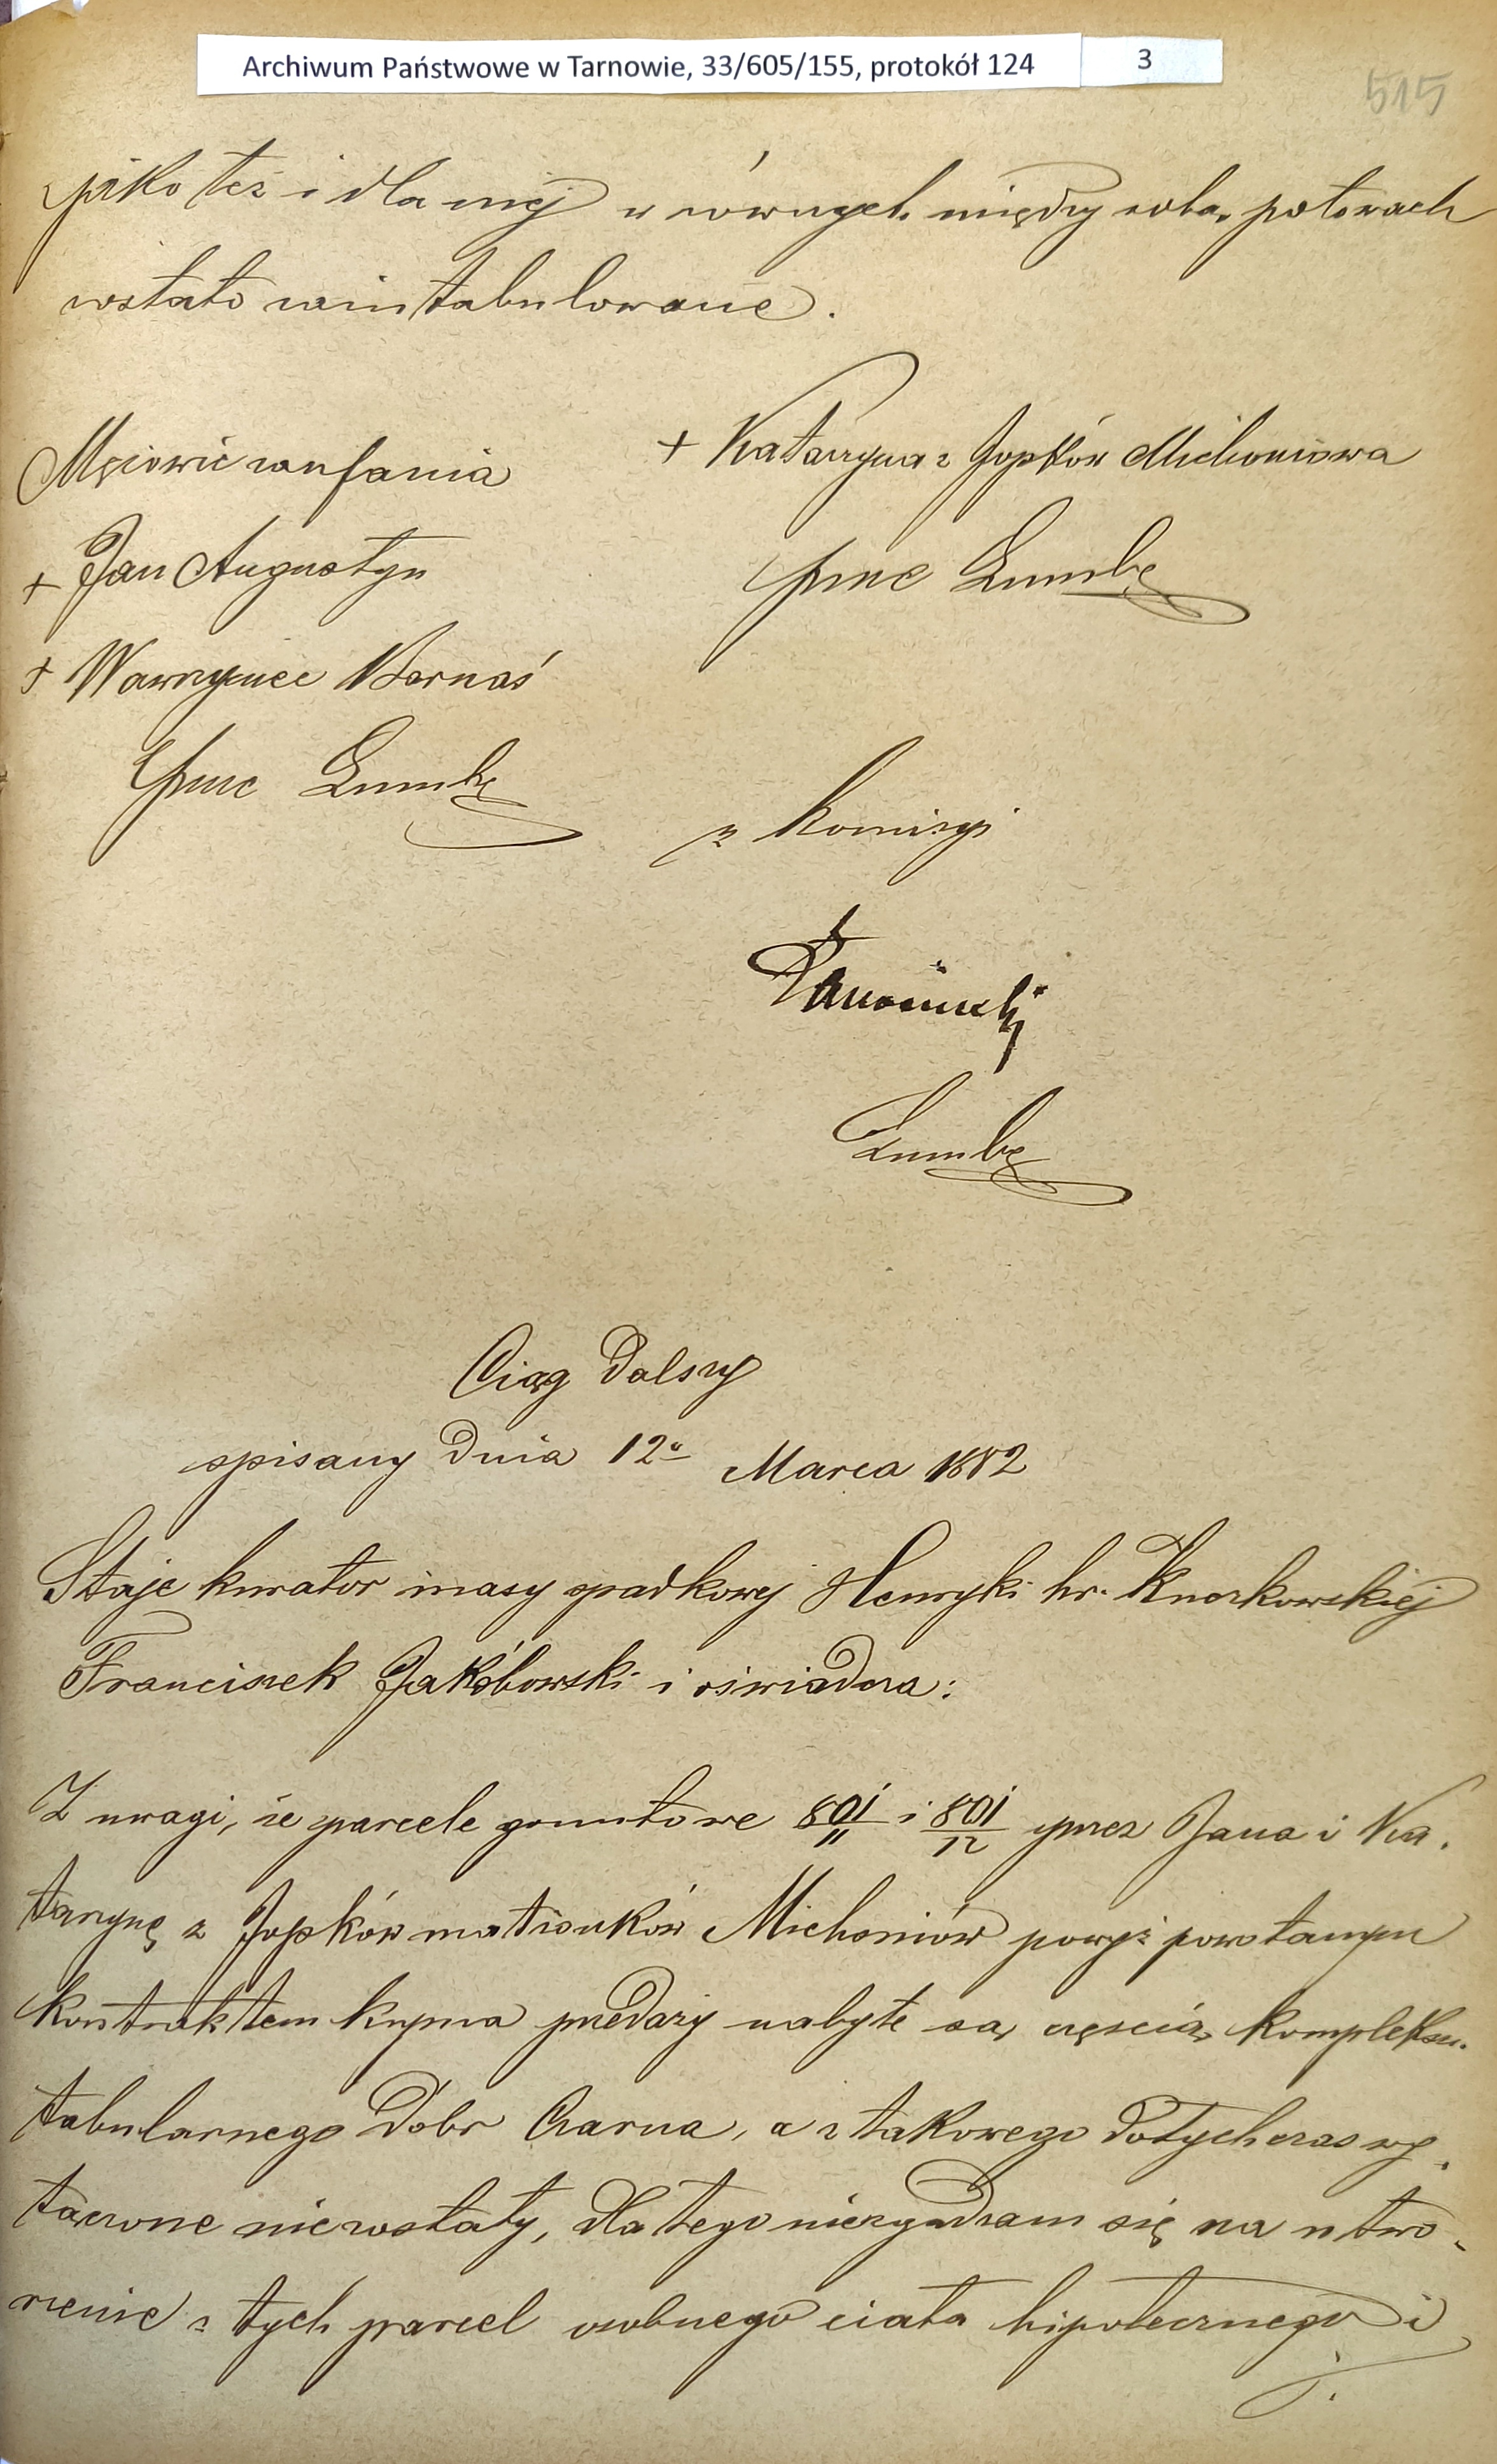 Archiwum Państwowe w Tarnowie, 33/605/155, protokół 124 3
515
jako też i dla niej w równych między sobą połowach
zostało zaintabulowane.
Mężowie zaufania
+ Katarzyna z Jopków Michoniowa
+ Jan Augustyn
przez Zumbę
+ Wawrzyniec Bernaś
przez Zumbę
z komisyi
Zumbę
Ciąg dalszy
spisany dnia 12o Marca 1882
Staje kurator masy spadkowej Henryki hr. Kuczkowskiej
Franciszek Jakóbowski i oświadcza:
Z uwagi, że parcele gruntowe 801/11 i 801/12 przez Jana i Ka-
tarzynę z Jopków małżonków Michoniów powyż powołanym
kontraktem kupna przedaży nabyte są częścią kompleksu
tabularnego dóbr Czarna, a z takowego dotychczas wy-
łączone nie zostały, dla tego nie zgadzam się na utwo-
rzenie z tych parcel osobnego ciała hipotecznego i